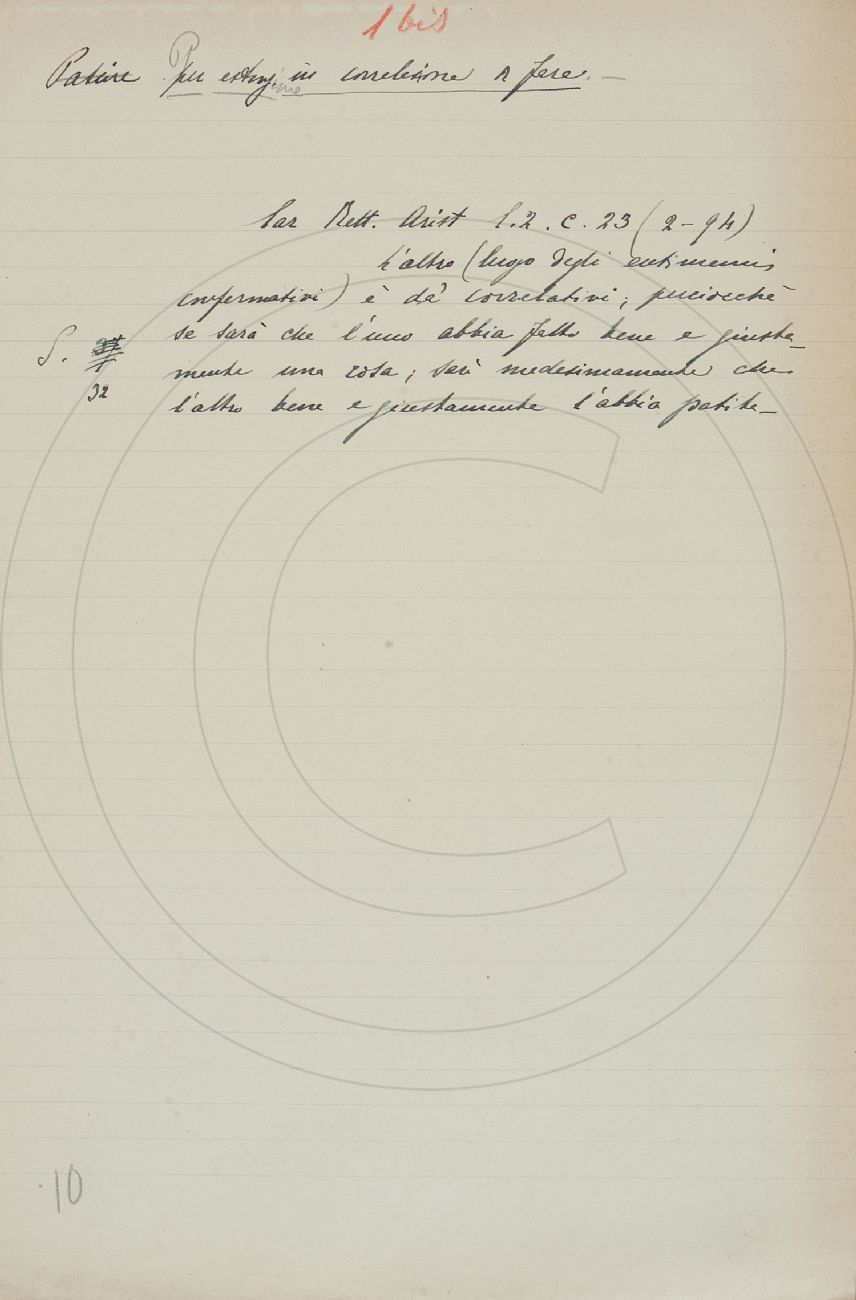 1 bis
Patire Per estens.ione in correlazione a fare. —
Car Rett. Arist l. 2. c. 23 (2-94)
L'altro (luogo degli entimemi
confermativi) è de' correlativi; perciocchè
se sarà che l'uno abbia fatto bene e giusta-
S. 31
mente una cosa; sarà medesimamente che
32
l'altro bene e giustamente l'abbia patita_
10